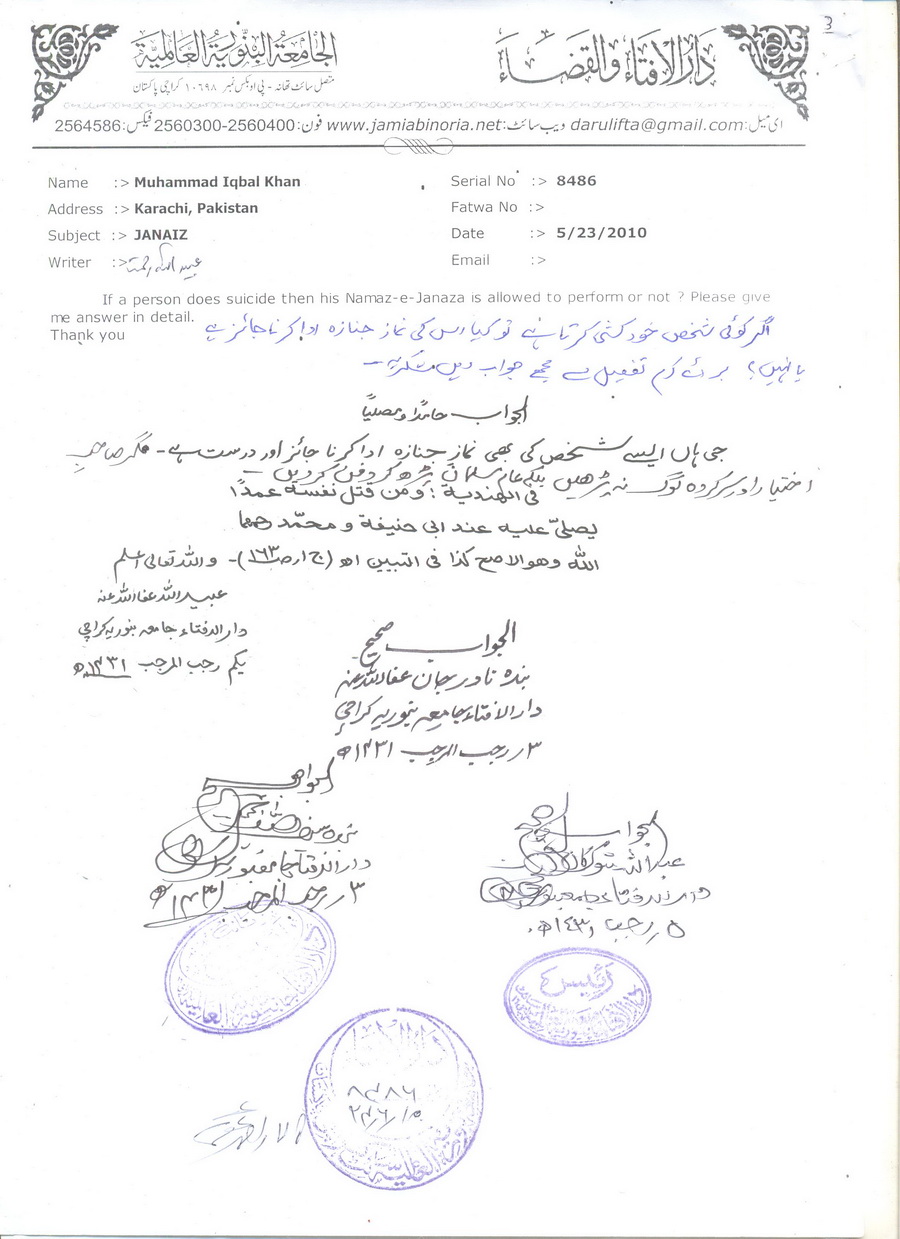 3
دَارُالاِفتَاءِ وَالقَضَاءِ
الجَامِعَةُ البِنُّورِيَّةُ العَالَمِيَّة
متصل سائٹ تھانہ - پی او بکس نمبر ۱۰۶۹۸ کراچی پاکستان
ای میل:darulifta@gmail.com ویب سائٹ:www.jamiabinoria.net فون:2560300-2560400 فیکس:2564586
Name :> Muhammad Iqbal Khan
Serial No :> 8486
Address :> Karachi, Pakistan
Fatwa No :>
Subject :> JANAIZ
Date :> 5/23/2010
Writer :> عبید اللہ
Email :>
If a person does suicide then his Namaz-e-Janaza is allowed to perform or not ? Please give
me answer in detail.
Thank you
اگر کوئی شخص خودکشی کرتا ہے تو کیا اس کی نماز جنازہ ادا کرنا جائز ہے
یا نہیں؟ برائے کرم تفصیل سے مجھے جواب دیں شکریہ۔
الجواب حامدًا و مصلیًا
جی ہاں ایسے شخص کی بھی نماز جنازہ ادا کرنا جائز اور درست ہے۔ مگر صاحبِ
اختیار اور سرکردہ لوگ نہ پڑھیں بلکہ عام مسلمان پڑھ کر دفن کر دیں۔
فی الھندیة : ومن قتل نفسه عمدًا
یصلیّ علیه عند ابی حنیفة و محمّد رحمھما
اللہ وھو الاصح کذا فی التبیین اھ (ج۱ ص۱۶۳)۔ واللہ تعالیٰ اعلم
عبید اللہ عفا اللہ عنہ
دار الافتاء جامعہ بنوریہ کراچی
یکم رجب المرجب ۱۴۳۱ھ
الجواب صحیح
بندہ نادر جان عفا اللہ عنہ
دار الافتاء جامعہ بنوریہ کراچی
۳/ رجب المرجب ۱۴۳۱ھ
الجواب
دار الافتاء جامعہ بنوریہ
۳/ رجب المرجب ۱۴۳۱ھ
الجواب
عبد اللہ شوکت
دار الافتاء جامعہ بنوریہ
۵/ رجب ۱۴۳۱ھ
رئیس
دار الافتاء
۸۴۸۶